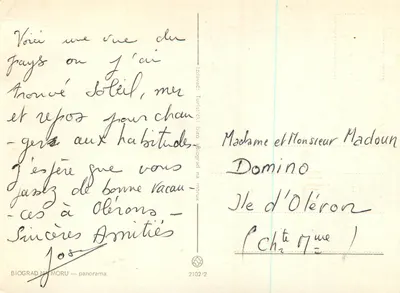 Voici une vue du
pays où j'ai
trouvé soleil, mer
et repos pour chan
-gers aux habitudes.
J'espère que vous
passez de bonne vacan-
-ces à Oléron _
Sincères Amitiés
Jos
BIOGRAD NA MORU — panorama
210212
Madame et Monsieur Madoun
Domino
Ile d'Oléron
(Chte Mme)